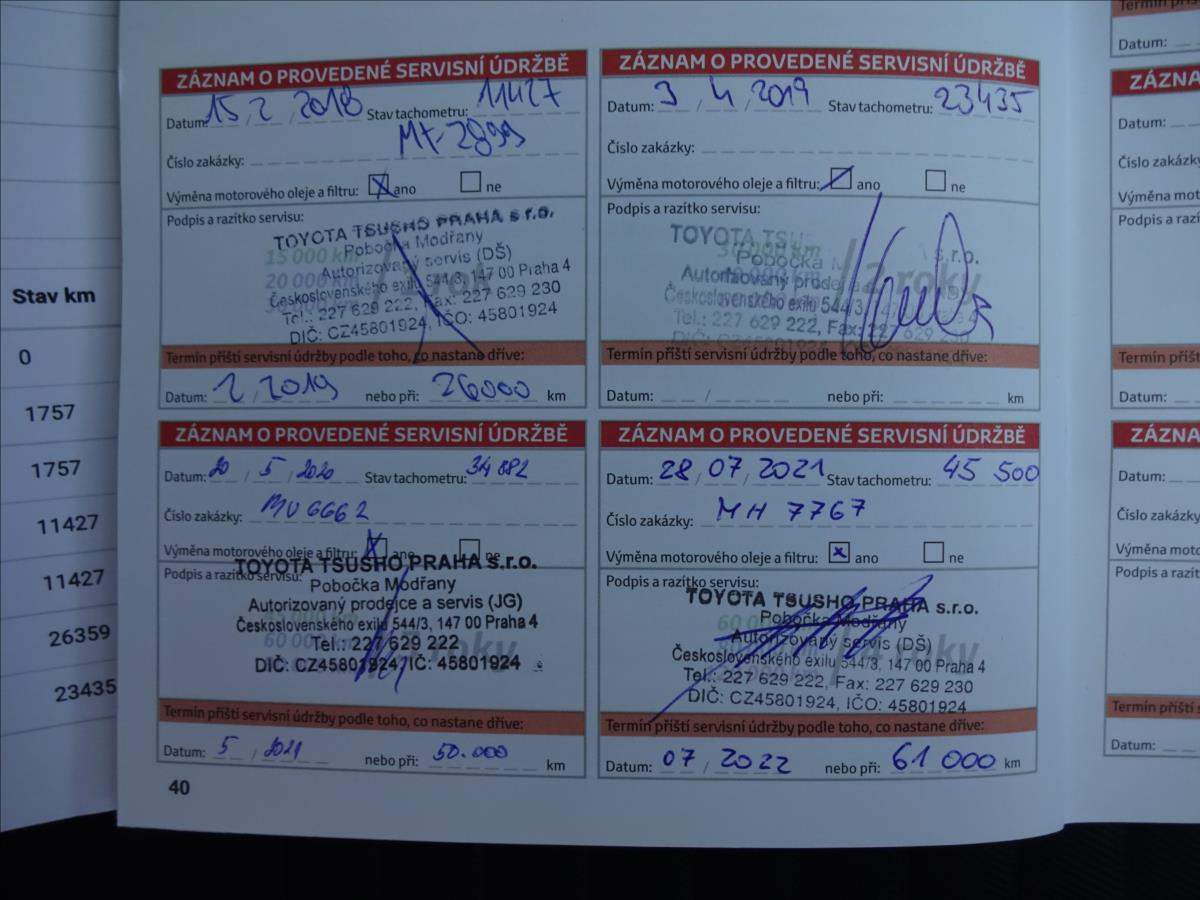 Stav km
0
1757
1757
11427
11427
26359
23435
ZÁZNAM O PROVEDENÉ SERVISNÍ ÚDRŽBĚ
Datum: 15 / 2 / 2018 Stav tachometru: 11427
Číslo zakázky: MT-2899
Výměna motorového oleje a filtru: ano ne
Podpis a razítko servisu:
TOYOTA TSUSHO PRAHA s r.o.
Pobočka Modřany
15 000 km
Autorizovaný servis (DŠ)
20 000 km
rok
Československého exilu 544/3, 147 00 Praha 4
Tel.: 227 629 222, Fax: 227 629 230
DIČ: CZ45801924, IČO: 45801924
Termín příští servisní údržby podle toho, co nastane dříve:
Datum: 2 / 2019 nebo při: 26000 km
ZÁZNAM O PROVEDENÉ SERVISNÍ ÚDRŽBĚ
Datum: 3 / 4 / 2019 Stav tachometru: 23435
Číslo zakázky:
Výměna motorového oleje a filtru: ano ne
Podpis a razítko servisu:
TOYOTA TSU s.r.o.
Pobočka M
/ 2 roky
Autorizovaný prode
Československého exilu 544/3
Tel.: 227 629 222, Fax: 227 629 230
Termín příští servisní údržby podle toho, co nastane dříve:
Datum: / nebo při: km
ZÁZNAM O PROVEDENÉ SERVISNÍ ÚDRŽBĚ
Datum: 20 / 5 / 2020 Stav tachometru: 34 882
Číslo zakázky: MU 6662
Výměna motorového oleje a filtru: ano ne
TOYOTA TSUSHO PRAHA s.r.o.
Podpis a razítko servisu:
Pobočka Modřany
Autorizovaný prodejce a servis (JG)
Československého exilu 544/3, 147 00 Praha 4
60 000 km
roky
Tel.: 227 629 222
DIČ: CZ45801924, IČ: 45801924
Termín příští servisní údržby podle toho, co nastane dříve:
Datum: 5 / 2021 nebo při: 50.000 km
ZÁZNAM O PROVEDENÉ SERVISNÍ ÚDRŽBĚ
Datum: 28 / 07 / 2021 Stav tachometru: 45 500
Číslo zakázky: MH 7767
Výměna motorového oleje a filtru: ano ne
Podpis a razítko servisu:
TOYOTA TSUSHO PRAHA s.r.o.
Pobočka Modřany
Autorizovaný servis (DŠ)
/ 4 roky
Československého exilu 544/3, 147 00 Praha 4
Tel.: 227 629 222, Fax: 227 629 230
DIČ: CZ45801924, IČO: 45801924
Termín příští servisní údržby podle toho, co nastane dříve:
Datum: 07 / 2022 nebo při: 61 000 km
40
Termín příšt
Datum:
ZÁZNA
Datum:
Číslo zakázky
Výměna mot
Podpis a razí
Termín příští
Datum:
ZÁZNA
Datum:
Číslo zakázky
Výměna moto
Podpis a razít
Termín příští s
Datum: